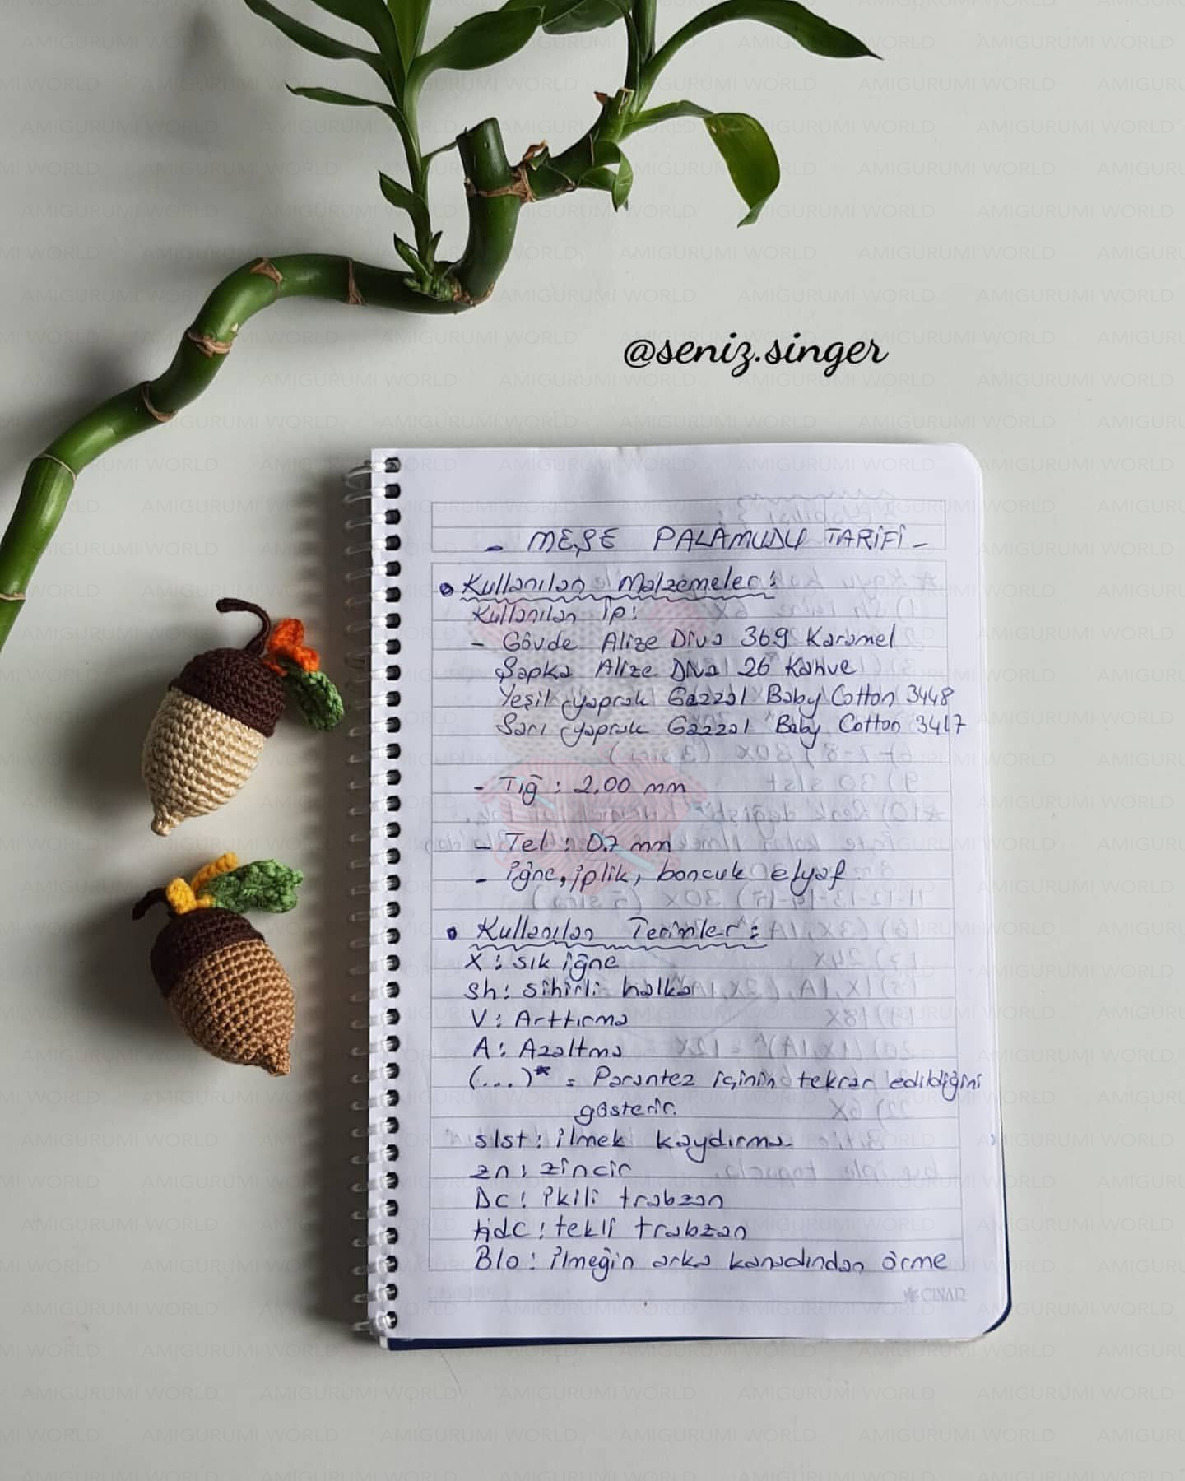 @seniz.singer
- MEŞE PALAMUDU TARİFİ -
• Kullanılan Malzemeler:
Kullanılan İp:
- Gövde Alize Diva 369 Karamel
Şapka Alize Diva 26 Kahve
Yeşil yaprak Gazzal Baby Cotton 3448
Sarı yaprak Gazzal Baby Cotton 3417
- Tığ : 2,00 mm
- Tel : 0.7 mm
- İğne, iplik, boncuk elyaf
• Kullanılan Terimler:
X : sık iğne
Sh : sihirli halka
V : Arttırma
A : Azaltma
(...)* = Parantez içinin tekrar edildiğini
gösterir.
slst : ilmek kaydırma
zn : zincir
Dc : ikili trabzan
Hdc : tekli trabzan
Blo : ilmeğin arka kanadından örme
ÇINAR
AMIGURUMI WORLD